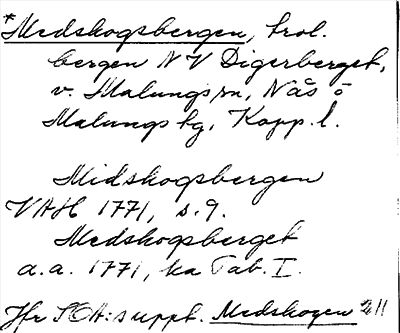 *Medskogsbergen, trol.
bergen NV Digerberget,
v. Malungs sn, Nås o
Malungs tg, Kopp. l.
Midskogsbergen
VAH 1771, s. 9.
Medskogsberget
a.a. 1771, ka Tab. I.
Jfr SOA:s uppt. Medskogen 2/1